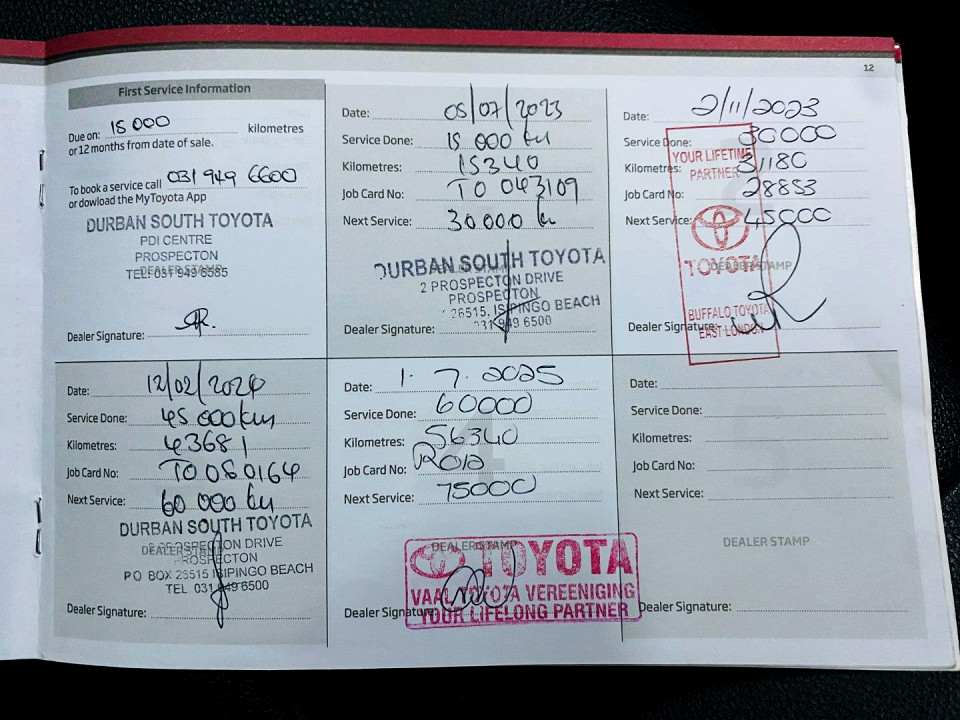 12
First Service Information
Due on: 15 000 kilometres
or 12 months from date of sale.
To book a service call 031 949 6600
or dowload the MyToyota App
DURBAN SOUTH TOYOTA
PDI CENTRE
PROSPECTON
DEALER STAMP
Dealer Signature:
Date: 05/07/2023
Service Done: 15 000 km
Kilometres: 15340
Job Card No: TO 043109
Next Service: 30 000 km
DURBAN SOUTH TOYOTA
DEALER STAMP
2 PROSPECTON DRIVE
PROSPECTON
26515, ISIPINGO BEACH
031 949 6500
Dealer Signature:
Date: 2/11/2023
Service Done: 30000
Kilometres: 31180
Job Card No: 28853
Next Service: 45000
YOUR LIFETIME
PARTNER
TOYOTA
DEALER STAMP
BUFFALO TOYOTA
EAST LONDON
Dealer Signature:
Date: 12/02/2024
Service Done: 45 000 km
Kilometres: 43681
Job Card No: TO 050164
Next Service: 60 000 km
DURBAN SOUTH TOYOTA
DEALER STAMP
PROSPECTON DRIVE
PROSPECTON
PO BOX 26515 ISIPINGO BEACH
TEL 031 949 6500
Dealer Signature:
Date: 1.7.2025
Service Done: 60000
Kilometres: 56340
Job Card No:
Next Service: 75000
DEALER STAMP
TOYOTA
VAAL TOYOTA VEREENIGING
YOUR LIFELONG PARTNER
Dealer Signature:
Date:
Service Done:
Kilometres:
Job Card No:
Next Service:
DEALER STAMP
Dealer Signature: